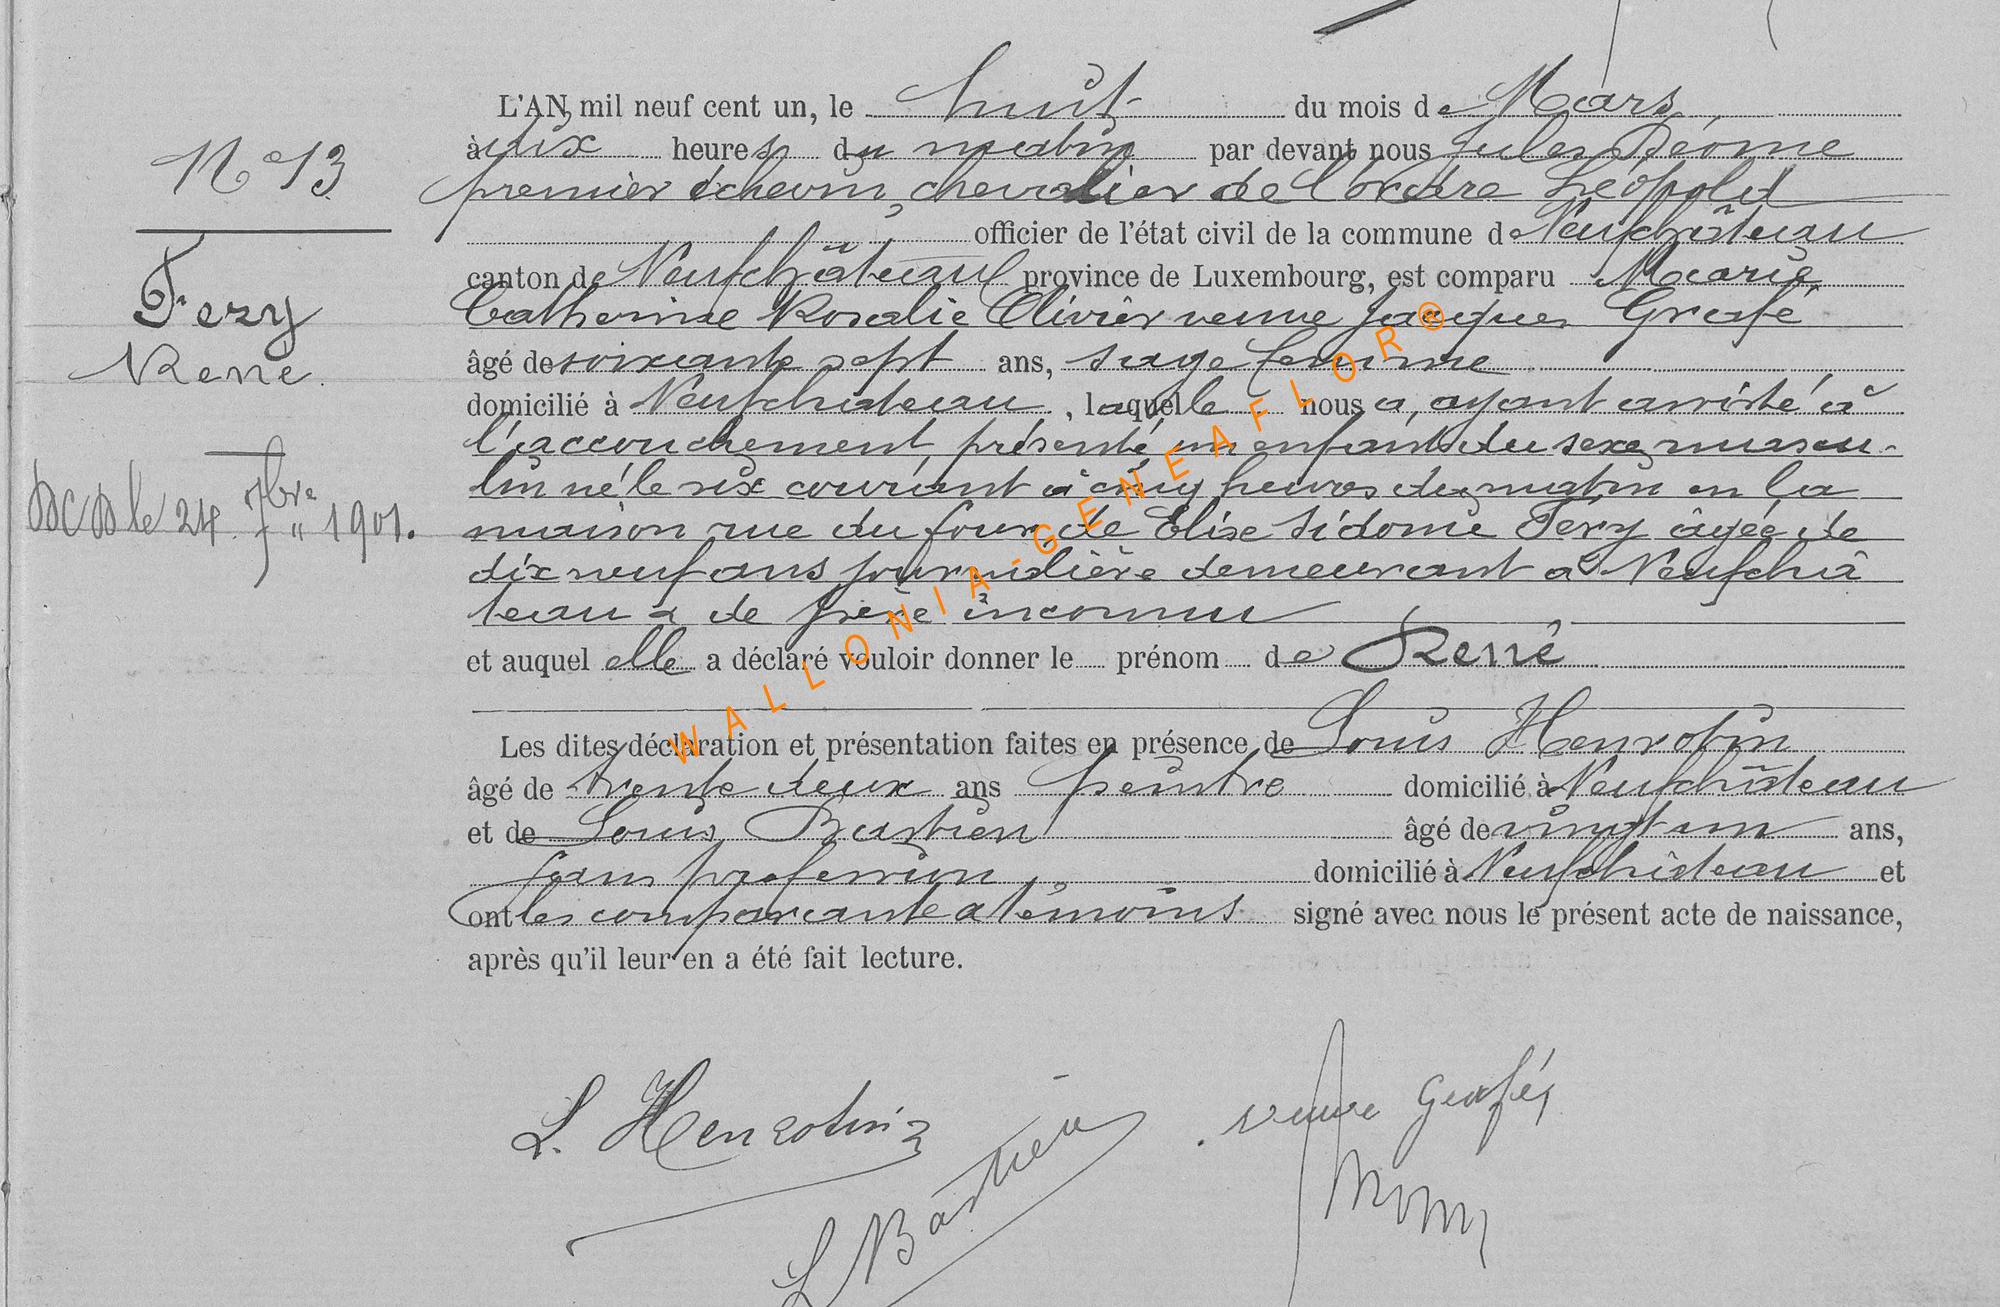 L'AN mil neuf cent un, le huit du mois de Mars
à dix heures du matin par devant nous Jules Déome
premier échevin, chevalier de l'ordre Léopold
officier de l'état civil de la commune de Neufchâteau
canton de Neufchâteau province de Luxembourg, est comparu Marie
Catherine Rosalie Olivier veuve Jacques Grafé
âgé de soixante sept ans, sage femme
domicilié à Neufchâteau, laquelle nous a, ayant assisté à
l'accouchement, présenté un enfant du sexe mascu-
lin né le six courant à cinq heures du matin en la
maison rue du four, de Elise Sidonie Fery âgée de
dix neuf ans journalière demeurant à Neufchâ
teau & de père inconnu
et auquel elle a déclaré vouloir donner le prénom de René
Les dites déclaration et présentation faites en présence de Louis Henrotin
âgé de trente deux ans peintre domicilié à Neufchâteau
et de Louis Bastien âgé de vingt un ans,
sans profession domicilié à Neufchâteau et
ont les comparante & témoins signé avec nous le présent acte de naissance,
après qu'il leur en a été fait lecture.
N° 13
Fery
René.
DCD le 24 7bre 1901.
L. Henrotin
L Bastien
veuve Grafé
WALLONIA-GENEAFLOR®